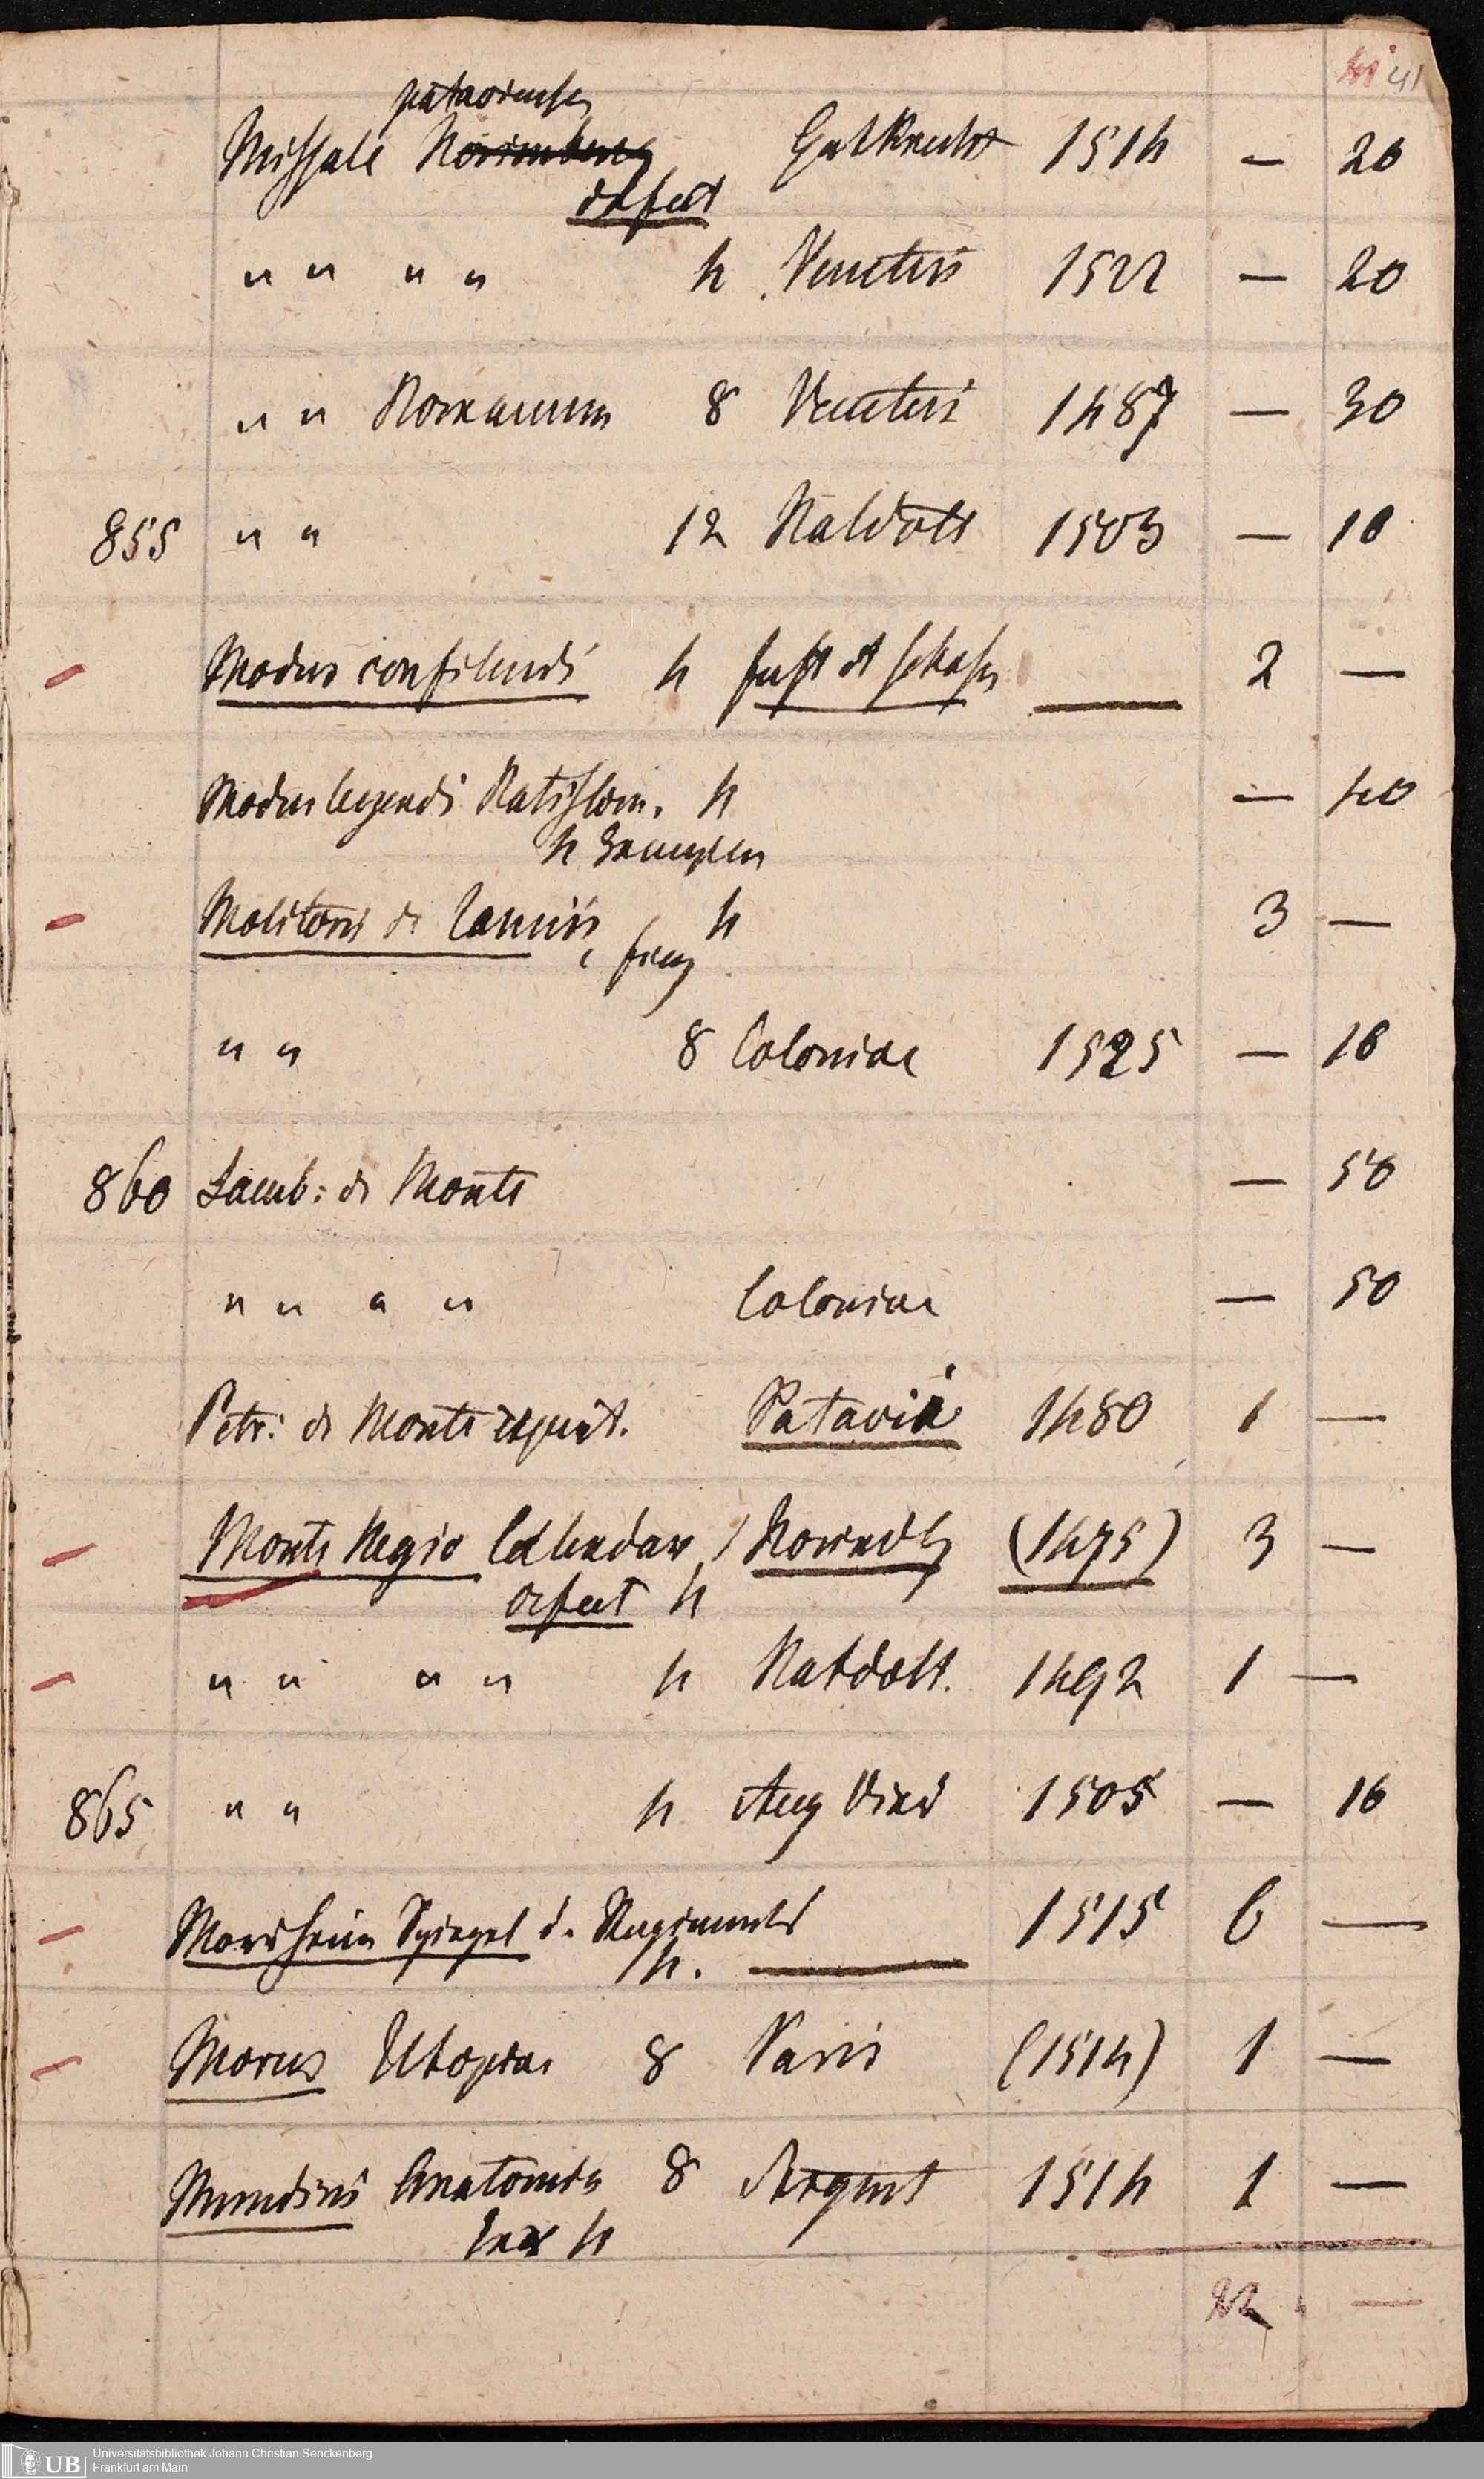 41
pataviensis
Missale Norimberg Gutknecht 1514 — 20
defect
" " " " 4 Venetiis 1522 — 20
" " Romanum 8 Venetiis 1487 — 30
855 " " 12 Ratdolt 1503 — 18
Modus confitendi 4 fust et schefer 2 —
Modus legendi Ratisbon. 4 — 40
4 Exemplar
Molitoris de Lamiis, 4 3 —
" " 8 Coloniae 1525 — 18
860 Lamb: de Monte — 50
" " " " Coloniae — 50
Petr: de Monte repert. Patavia 1480 1 —
Monte Regio Calendar Norimbg (1475) 3 —
defect 4
" " " " 4 Ratdolt. 1492 1 —
865 " " 4 Aug Vind 1505 — 16
Morsheim Spiegel d. Regiments 1515 6 —
4.
Morus Utopiae 8 Paris (1514) 1 —
Mundini Anatomia 8 Argent 1514 1 —
4
22 —
UB Universitätsbibliothek Johann Christian Senckenberg
Frankfurt am Main